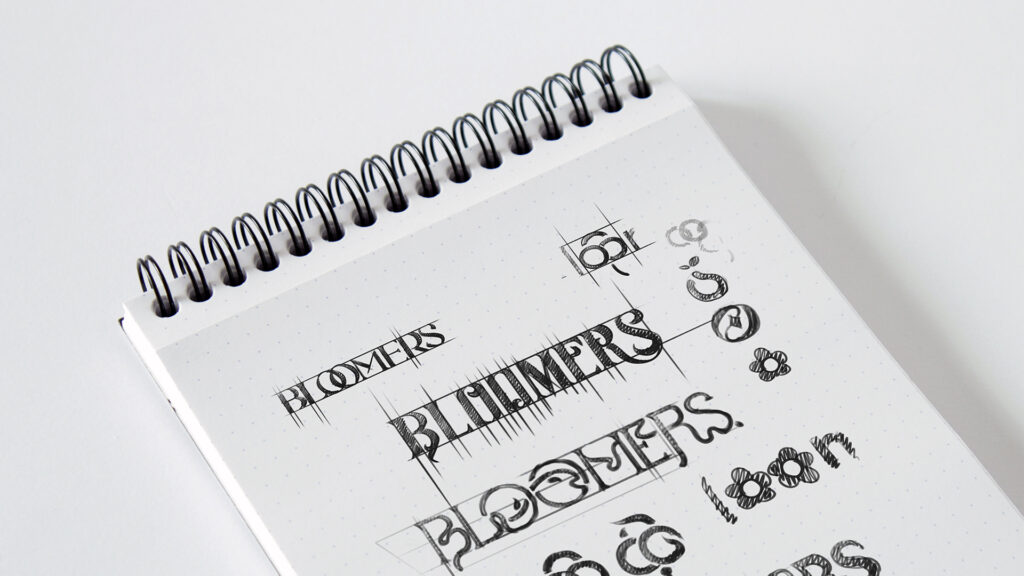 BLOOMERS
BLOOMERS
BLOOMERS.
loon
ERS